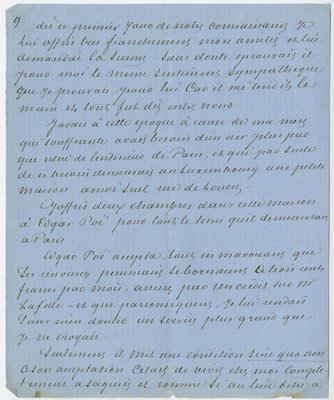 9
dès ce premier jour de notre connaissance je
lui offris tres franchement mon amitié et lui
demandai la sienne - Sans doute eprouvait il
pour moi le meme sentiment sympathique
que je prouvais pour lui Car il me tendit la
main et tout fut dit entre nous
J'avais à cette epoque à cause de ma mere
qui souffrante avait besoin d'un air plus pur
que celui de l'interieur de Paris, et que par suite
de ce besoin demeurait au Luxembourg une petite
maison a moi seul rue de
J'offris deux chambres dans cette maison
à Edgar Poë pour tout le tems qu'il demeurerait
a Paris
Edgar Poë accepta, tout en m'avouant que
Ses resources pecuniaires se bornaient a trois cents
francs par mois, assurés par un credit sur Mr
Lafitte - et que par consequent, je lui rendais
Sans m'en douter un service plus grand que
je ne croyais
Seulement il mit une condition sine qua non
a son acceptation C'etait de vivre chez moi comple-
tement a sa guise et comme si au lieu d'etre a